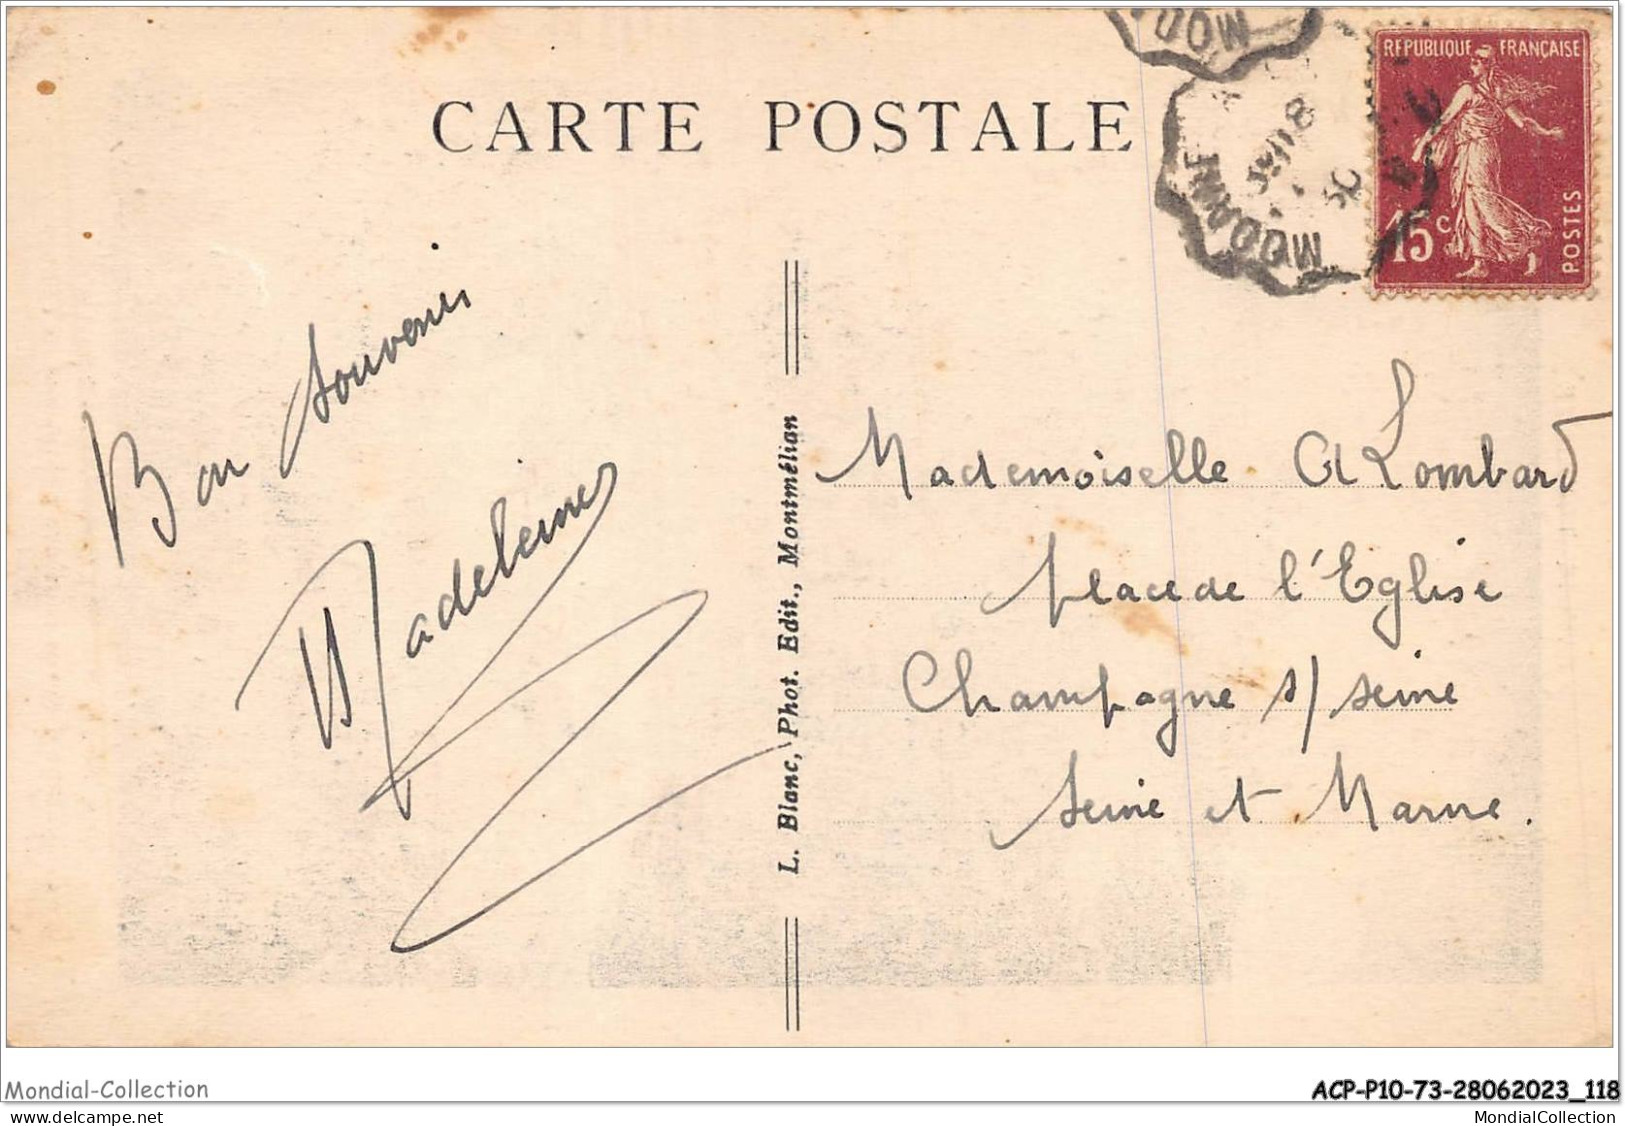 CARTE POSTALE
MOD
MODANE
REPUBLIQUE FRANÇAISE
15c
POSTES
Bon souvenir
Madeleine
L. Blanc, Phot. Edit., Montmélian
Mademoiselle A Lombard
place de l'Eglise
Champagne s/ seine
Seine et Marne.
Mondial-Collection
ACP-P10-73-28062023_118
MondialCollection